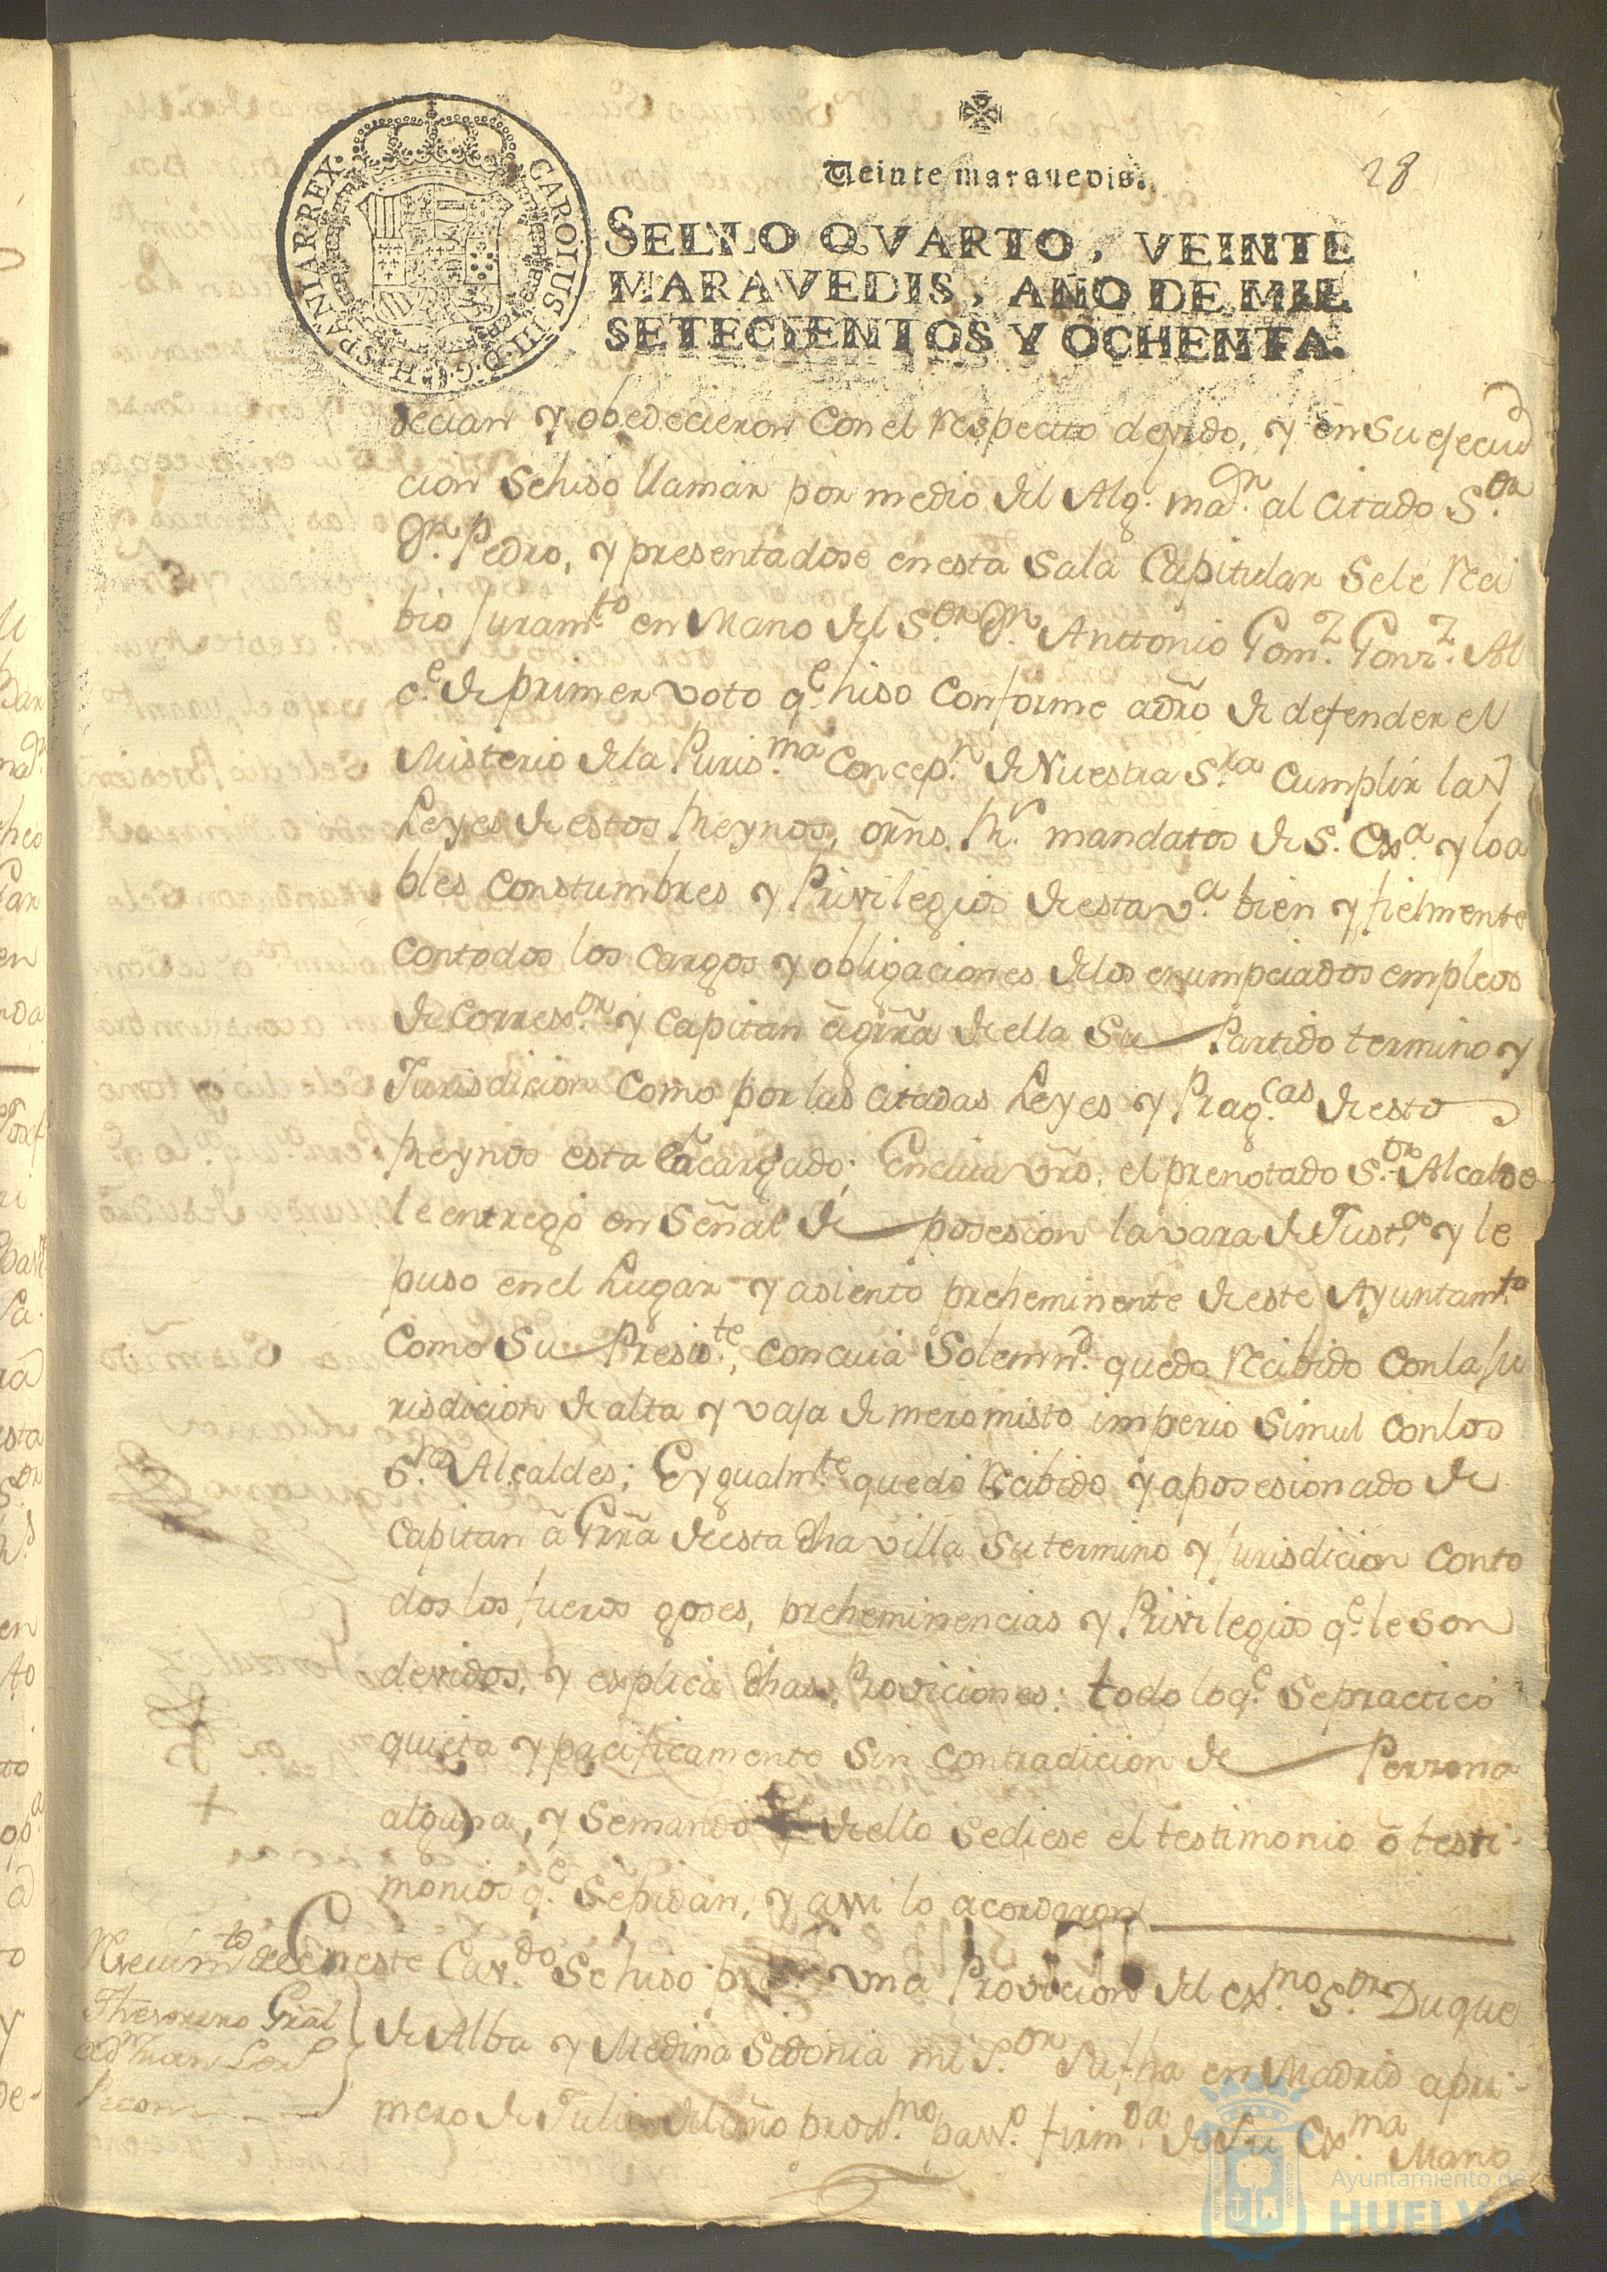 Veinte maravedis.
28
CAROLUS III D. G. HISPANIAR. REX.
SELLO QVARTO, VEINTE
MARAVEDIS, AÑO DE MIL
SETECIENTOS Y OCHENTA.
decian y obedecieron con el respecto devido, y en su ejecu
cion se hiso llamar por medio del Alg.r ma.r al citado S.or
Dn. Pedro, y presentadose en esta Sala Capitular se le reci
bio juram.to en Mano del S.or Dn. Anttonio Gom.z Gonz.z Al
c.e de primer voto q.e hiso conforme a dro de defender el
Misterio de la Puris.ma Concep.n de Nuestra S.ra cumplir las
Leyes de estos Reynos, orns. Rs. mandatos de S. Ex.a y loa
bles constumbres y Privilegios de esta v.a bien y fielmente
con todos los cargos y obligaciones de los enumpciados empleos
de Corres.or y Capitan â grra de ella su Partido termino y
Jurisdicion como por las citadas Leyes y Prag.cas de esto
Reynos esta encargado; En cuia vrd. el prenotado S.or Alcalde
le entregó en Señal de posesion la vara de Just.a y le
puso en el Lugar y asiento preheminente de este Ayuntam.to
como su Presid.te, con cuia Solemn.d quedo recibido con la ju
risdicion de alta y vaja de mero misto imperio simul con los
S.res Alcaldes; E ygualm.te quedó recibido y aposesionado de
Capitan â Grrã de esta dha villa su termino y jurisdicion con to
dos los fueros goses, preheminencias y Privilegios q.e le son
devidos, y explica dhas Proviciones: todo lo q.e se practicó
quieta y pacificamente sin contradicion de Perrona
alguna, y se mandó de ello se diese el testimonio ô testi
monios q.e se pidan, y assi lo acordaron
Recivim.to de
Thesorero Gral
a Dn. Juan
En este Cav.do se hiso una Provicion del Ex.mo S.or Duque
de Alba y Medina Sidonia mi S.or su fha en Madrid a pri
mero de Julio del año prox.mo pass.o firm.da de su Ex.ma Mano
Ayuntamiento de
HUELVA